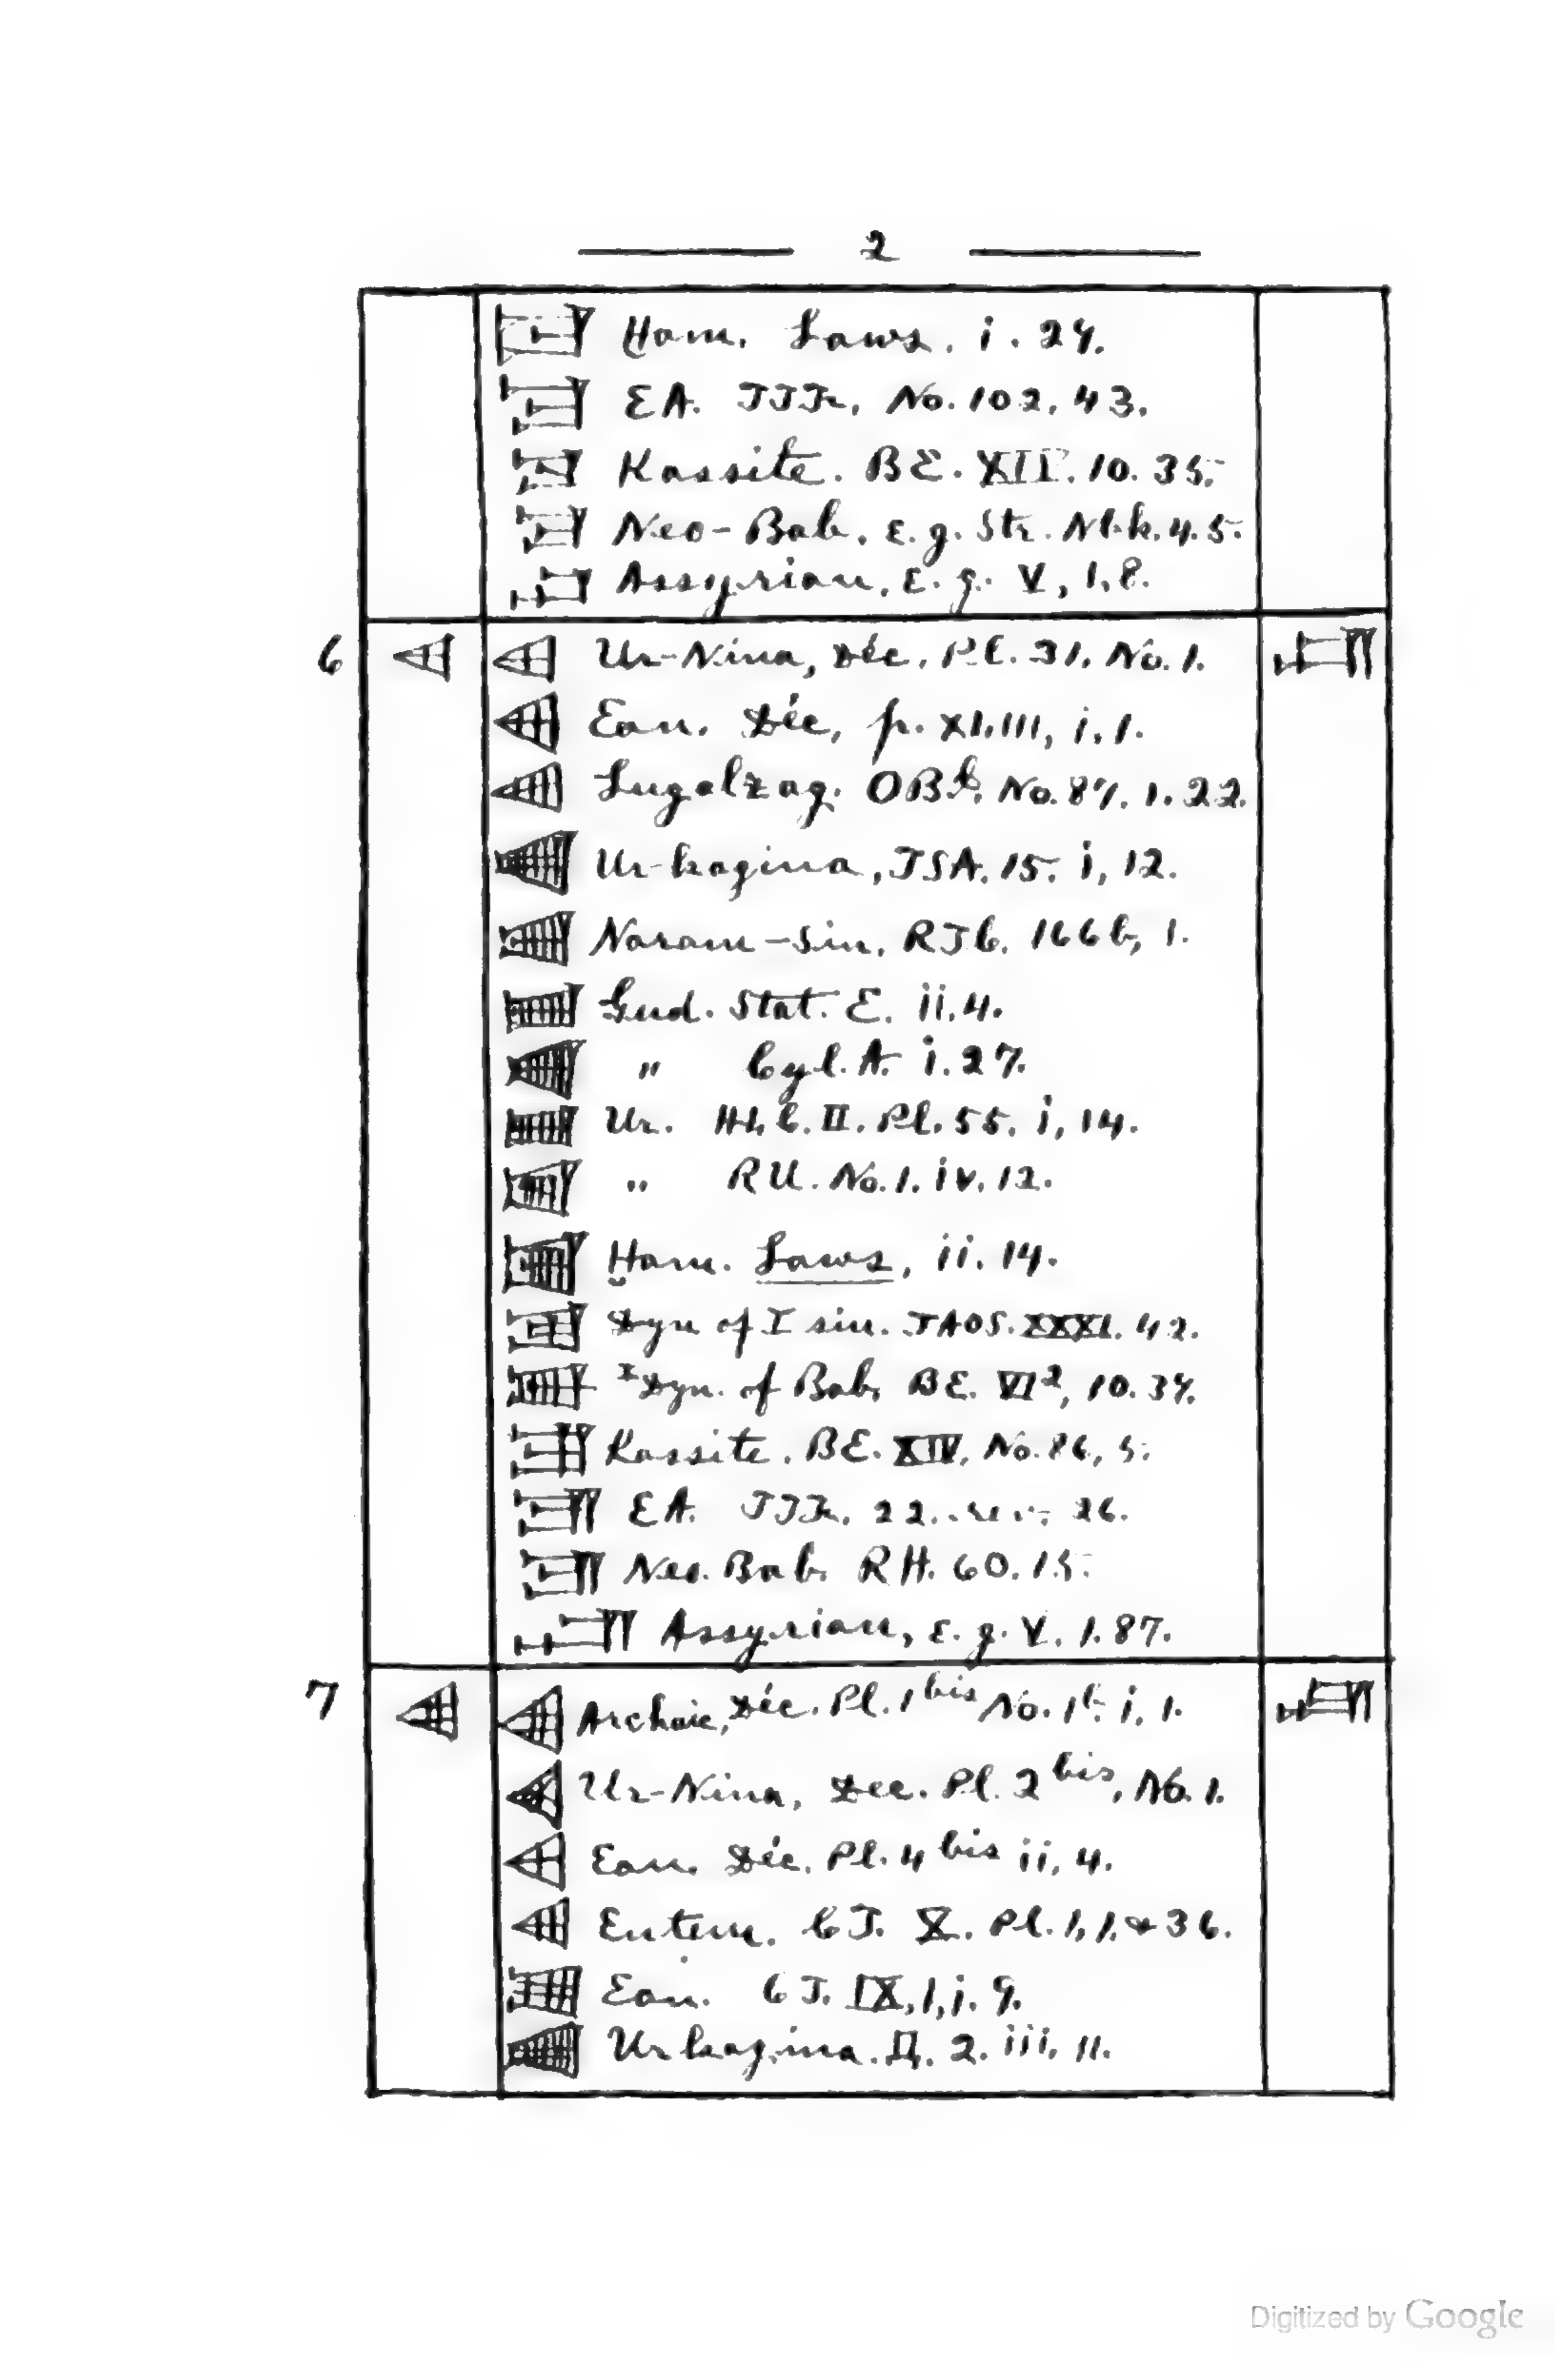 2
Ḫam. Laws. i. 24.
EA. TTK, No. 102, 43.
Kassite. BE. XIV. 10. 35.
Neo-Bab. e.g. Str. Nbk. 4. 5.
Assyrian, e.g. V, 1, 8.
6 Ur-Nina, Déc. Pl. 31. No. 1.
Ean. Déc, p. XLIII, i, 1.
Lugalzag. OBI, No. 87. 1. 22.
Ur-kagina, TSA. 15. i, 12.
Naram-Sin, RTC. 166b, 1.
Gud. Stat. E. ii. 4.
" Cyl. A. i. 27.
Ur. HLC. II. Pl. 55. i, 14.
" RU. No. 1. iv. 12.
Ḫam. Laws, ii. 14.
Dyn of Isin. JAOS. XXXI. 42.
I Dyn. of Bab. BE. VI², 10. 34.
Kassite. BE. XIV. No. 86, 5.
EA. TTK. 22. rev. 26.
Neo. Bab. RH. 60. 15.
Assyrian, e.g. V. 1. 87.
7 Archaic, Déc. Pl. 1bis No. 1b. i, 1.
Ur-Nina, Dec. Pl. 2bis, No. 1.
Ean. Déc. Pl. 4bis ii, 4.
Entem. CT. X. Pl. 1, 1, & 36.
Ean. CT. IX, 1, i. 9.
Urkagina. 2. iii, 11.
Digitized by Google